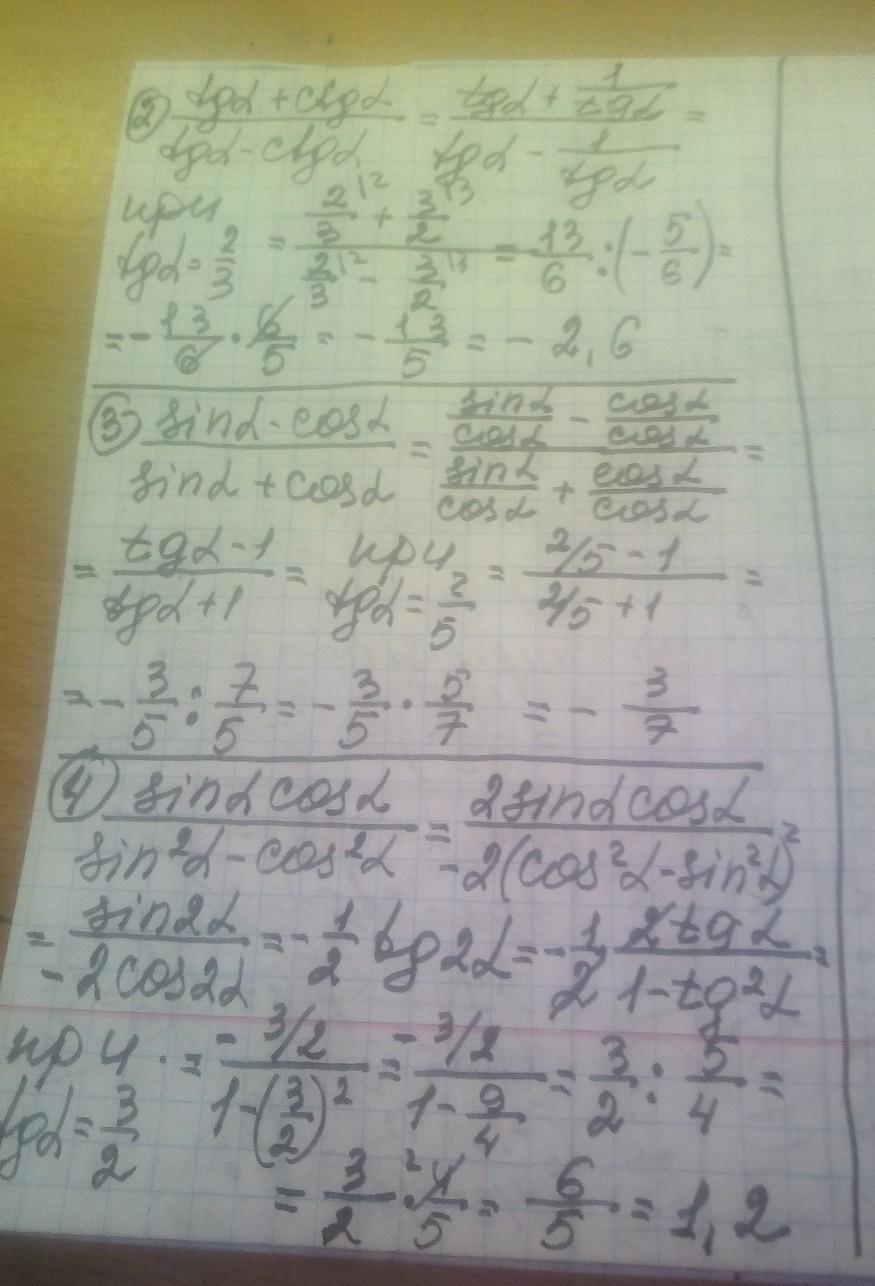 ② (tgα + ctgα)/(tgα - ctgα) = (tgα + 1/tgα)/(tgα - 1/tgα) =
при tgα = 2/3 = (2/3 |2 + 3/2 |3)/(2/3 |2 - 3/2 |3) = 13/6 : (-5/6) =
= -13/6 · 6/5 = -13/5 = -2,6
③ (sinα - cosα)/(sinα + cosα) = (sinα/cosα - cosα/cosα)/(sinα/cosα + cosα/cosα) =
= (tgα - 1)/(tgα + 1) = при tgα = 2/5 = (2/5 - 1)/(2/5 + 1) =
= -3/5 : 7/5 = -3/5 · 5/7 = -3/7
④ (sinα cosα)/(sin²α - cos²α) = (2sinα cosα)/(-2(cos²α - sin²α)) =
= sin2α/(-2cos2α) = -1/2 tg2α = -1/2 · 2tgα/(1 - tg²α) =
при tgα = 3/2 · = (-3/2)/(1 - (3/2)²) = (-3/2)/(1 - 9/4) = 3/2 : 5/4 =
= 3/2 · 4/5 = 6/5 = 1,2